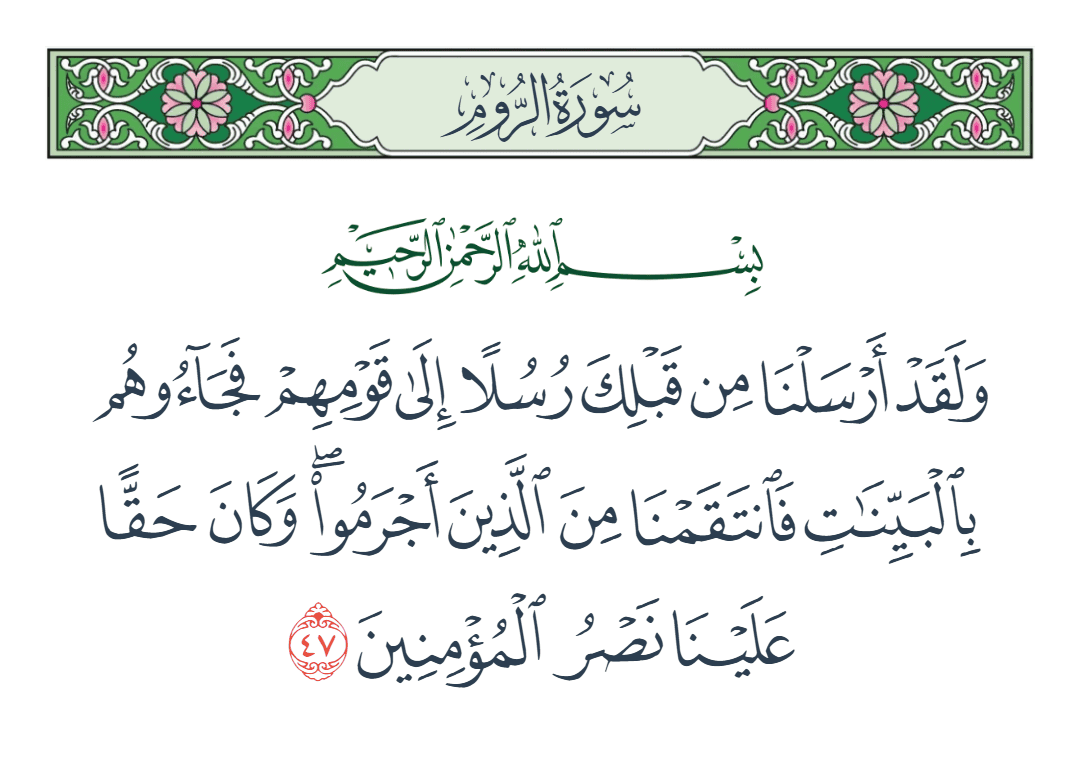 سُورَةُ الرُّومِ
بِسْمِ ٱللَّهِ ٱلرَّحْمَٰنِ ٱلرَّحِيمِ
وَلَقَدْ أَرْسَلْنَا مِن قَبْلِكَ رُسُلًا إِلَىٰ قَوْمِهِمْ فَجَآءُوهُم
بِٱلْبَيِّنَٰتِ فَٱنتَقَمْنَا مِنَ ٱلَّذِينَ أَجْرَمُوا۟ ۖ وَكَانَ حَقًّا
عَلَيْنَا نَصْرُ ٱلْمُؤْمِنِينَ ٤٧